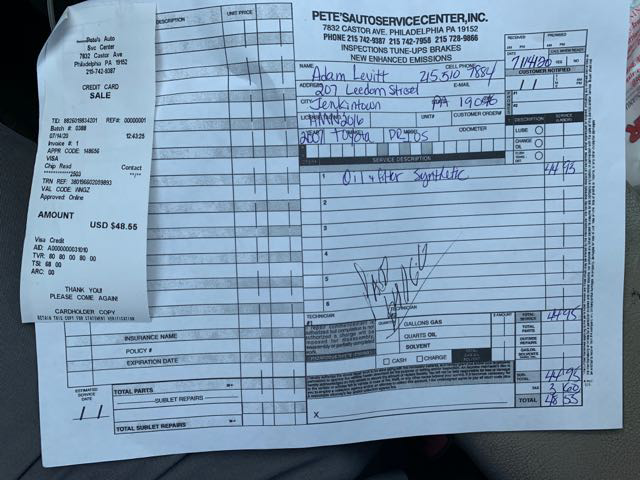 Pete's Auto
Svc Center
7832 Castor Ave
Philadelphia PA 19152
215-742-9387
CREDIT CARD
SALE
TID: 8826019834201 REF#: 00000001
Batch #: 0388
07/14/20 12:43:25
Invoice #: 1
APPR CODE: 148656
VISA
Chip Read Contact
************2503 **/**
TRN REF: 380196602099893
VAL CODE: HNGZ
Approved: Online
AMOUNT
USD $48.55
Visa Credit
AID: A0000000031010
TVR: 80 80 00 80 00
TSI: 68 00
ARC: 00
THANK YOU!
PLEASE COME AGAIN!
CARDHOLDER COPY
RETAIN THIS COPY FOR STATEMENT VERIFICATION
DESCRIPTION UNIT PRICE
INSURANCE NAME
POLICY #
EXPIRATION DATE
ESTIMATED
SERVICE
DATE
TOTAL PARTS
SUBLET REPAIRS
TOTAL SUBLET REPAIRS
PETE'S AUTO SERVICE CENTER, INC.
7832 CASTOR AVE. PHILADELPHIA PA 19152
PHONE 215 742-9387 215 742-7958 215 728-9866
INSPECTIONS TUNE-UPS BRAKES
NEW ENHANCED EMISSIONS
RECEIVED PROMISED
7/14/20
CUSTOMER NOTIFIED
NAME Adam Levitt CELL PHONE 215.510 7884
ADDRESS 207 Leedom Street E-MAIL
CITY Jenkintown PA 19046
UNIT# CUSTOMER ORDER#
HNN2016
2007 Toyota PRIUS ODOMETER
LUBE
CHANGE
OIL
SERVICE DESCRIPTION
1 Oil & filter Synthetic 44 95
2
3
4
5
6
TECHNICIAN
TECHNICIAN
#1
QUARTS GALLONS GAS
QUARTS OIL
SOLVENT
$ AMOUNT
CASH CHARGE
TOTAL
SERVICE 44 95
TOTAL
PARTS
OUTSIDE
REPAIRS
SUB-
TOTAL 44 95
TAX 3 60
TOTAL 48 55
X